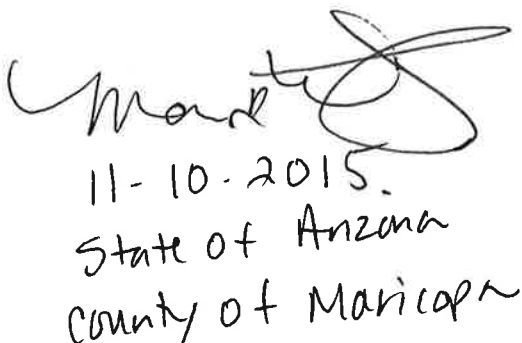 11-10-2015.
State of Arizona
County of Maricopa